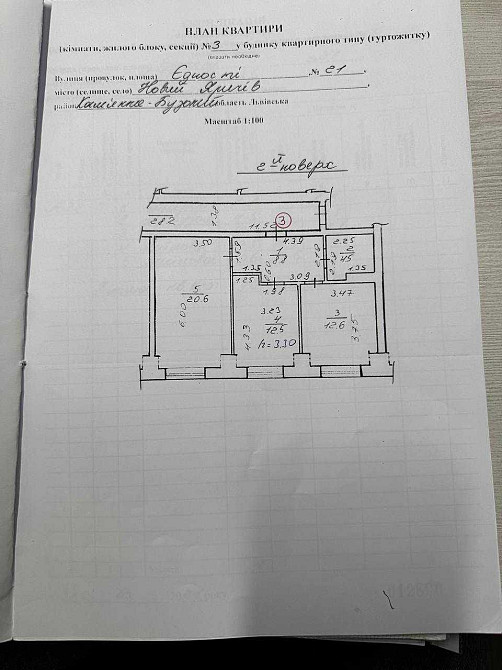 ПЛАН КВАРТИРИ
(кімнати, жилого блоку, секції) № 3 у будинку квартирного типу (гуртожитку)
Вулиця (провулок, площа) Єдності № 21,
місто (селище, село) Новий Яричів,
район Кам'янка-Бузький область Львівська
Масштаб 1:100
2-й поверх
282
1.78
11.52
3
3.50
1.59
4.39
2.25
1
8.8
2.18
2
4.5
1.35
1.25
2.60
1.35
1.98
3.09
5
20.6
6.00
3.23
4
12.5
4.33
h=3.30
3.47
3
12.6
3.75